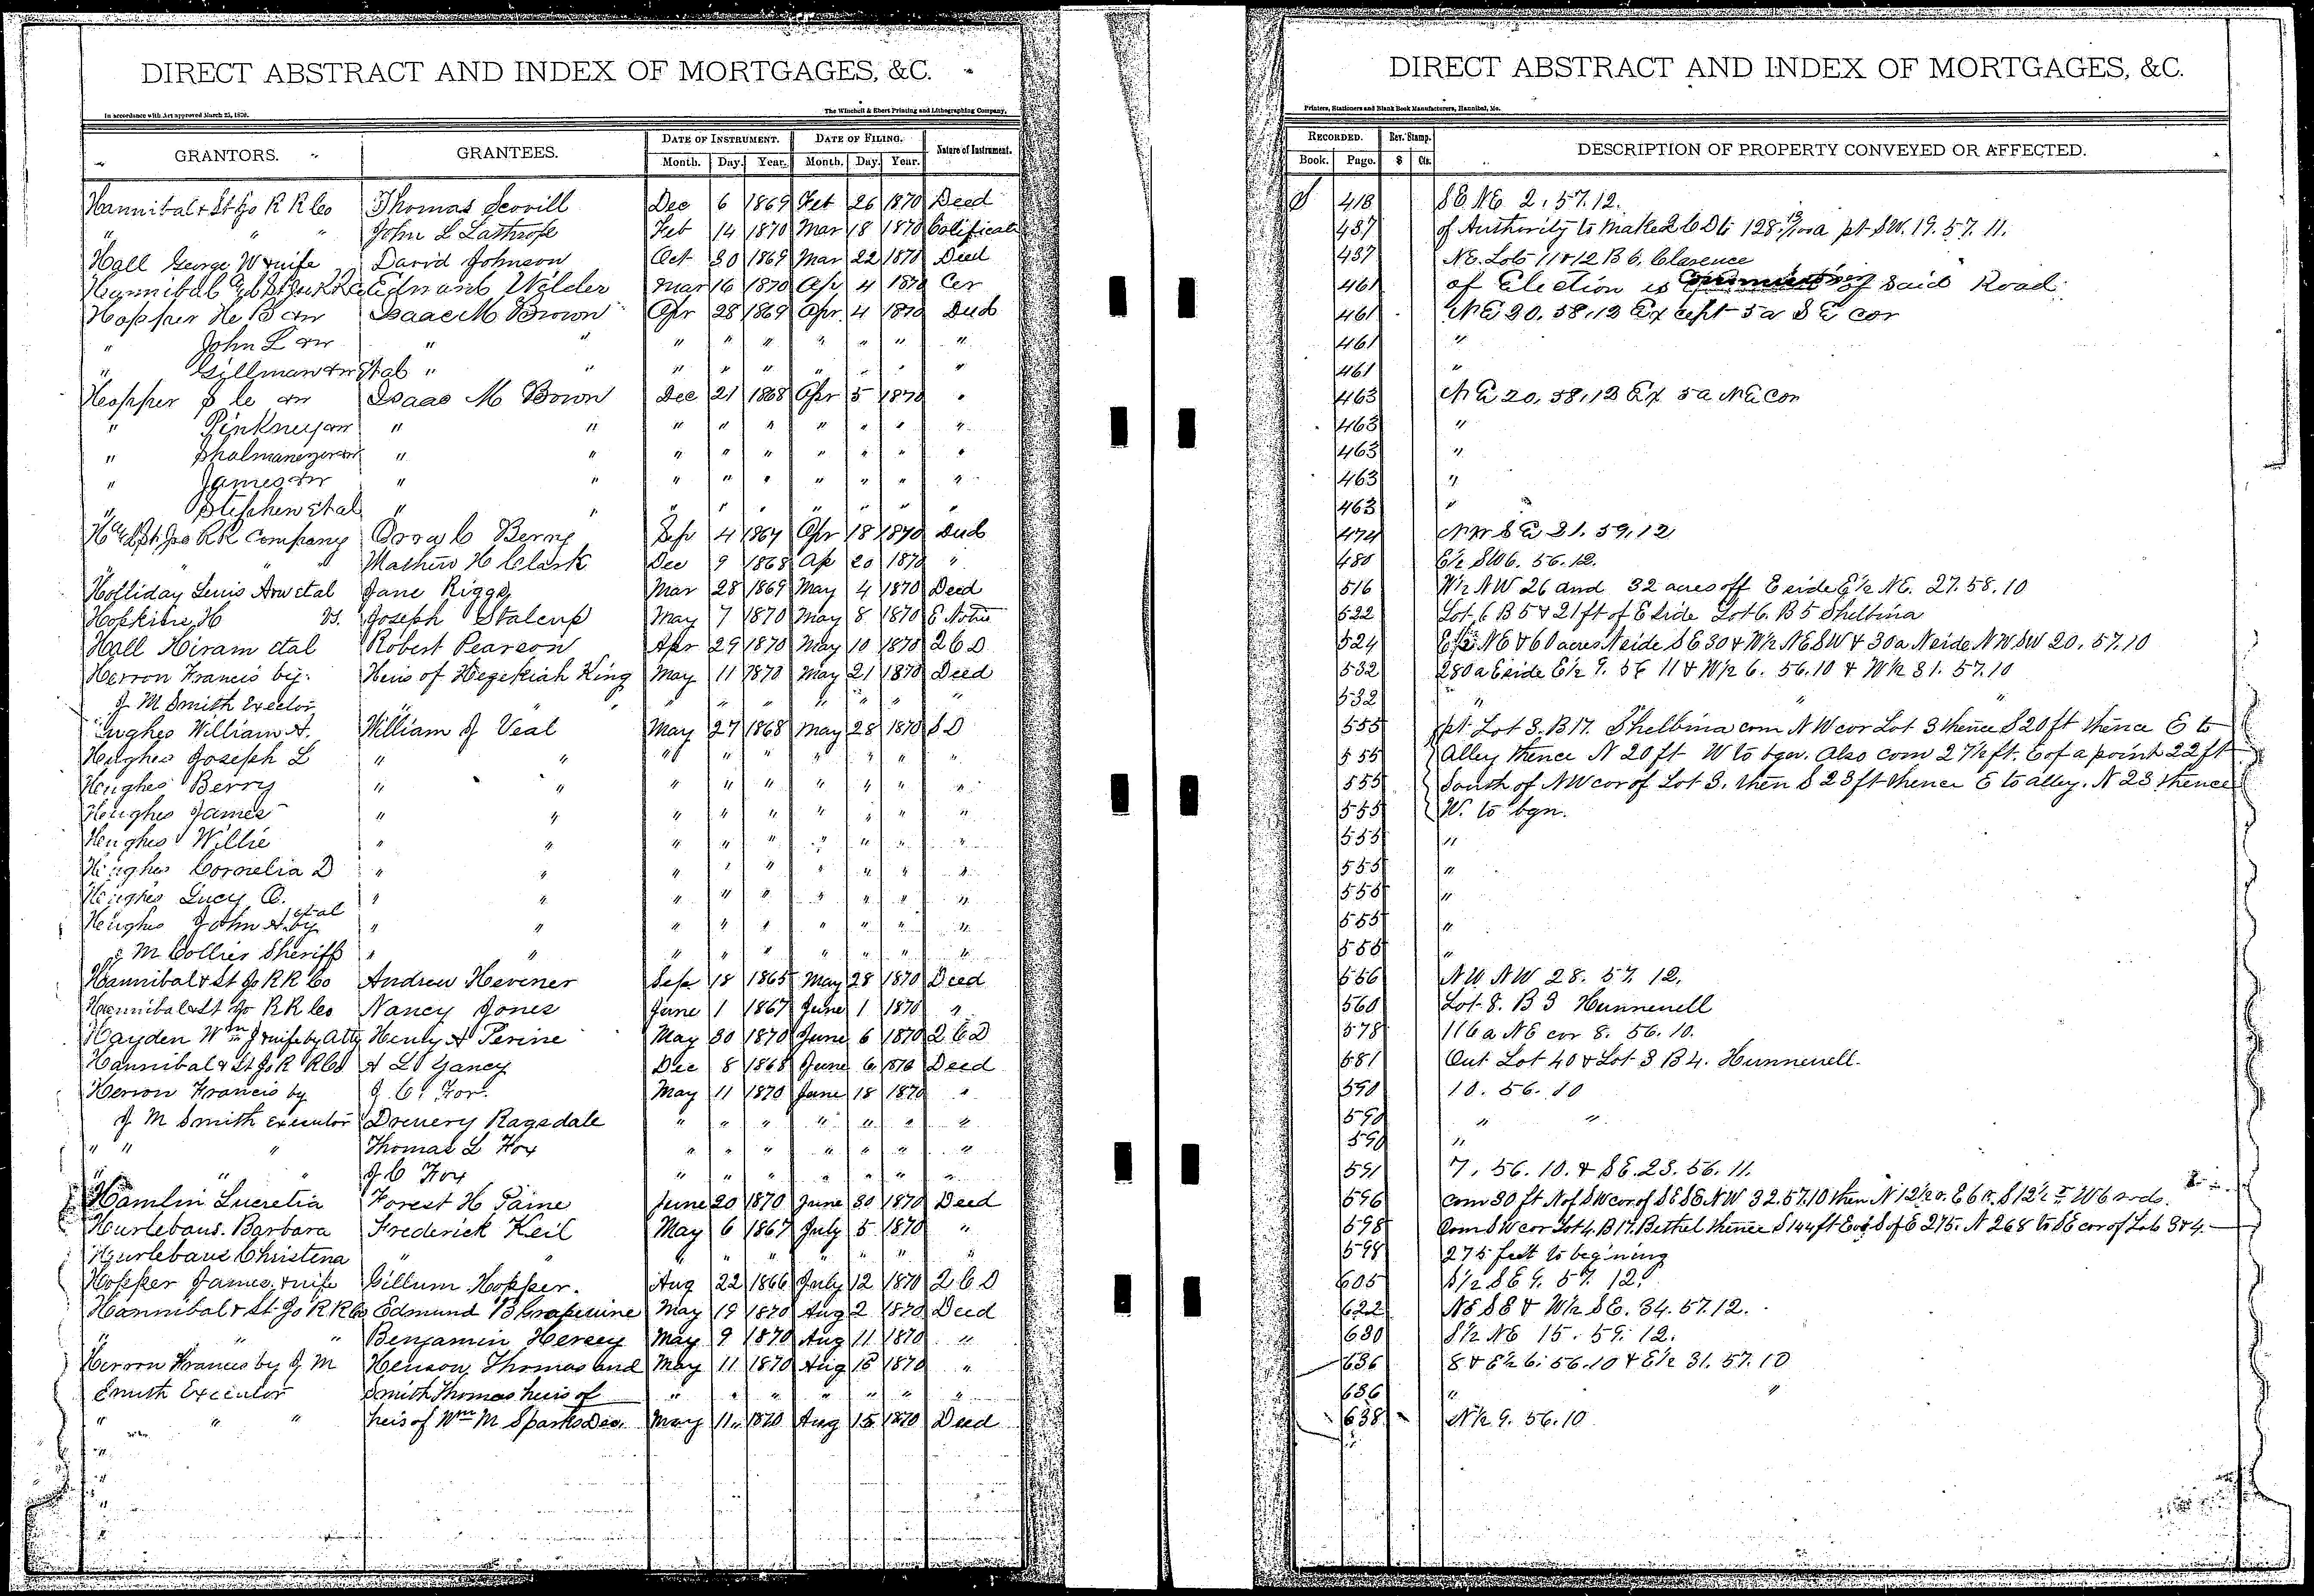 DIRECT ABSTRACT AND INDEX OF MORTGAGES, &C.
In accordance with Act approved March 25, 1870.
The Winchell & Ebert Printing and Lithographing Company,
GRANTORS. GRANTEES. DATE OF INSTRUMENT. DATE OF FILING. Nature of Instrument.
Month. Day. Year. Month. Day. Year.
Hannibal & St Jo R R Co Thomas Scovill Dec 6 1869 Feb 26 1870 Deed
" " " John L Lathrop Feb 14 1870 Mar 18 1870 Certificate
Hall George W & wife David Johnson Oct 30 1869 Mar 22 1870 Deed
Hannibal & St Jo RR Co Edward Wilder Mar 16 1870 Ap 4 1870 Cer
Hopper He B & w Isaac M Brown Apr 28 1869 Apr. 4 1870 Deed
" John L & w " " " " " " " " "
" Gillman & w et al " " " " " " " " "
Hopper J C & w Isaac M Brown Dec 21 1868 Apr 5 1870 "
" Pinkney & w " " " " " " " " "
" Shalmanezer & w " " " " " " " " "
" James & w " " " " " " " " "
" Stephen et al " " " " " " " " "
Ha & St Jos RR Company Orra C Berry Sep 4 1867 Apr 18 1870 Deed
" " " Mathew H Clark Dec 9 1868 Ap 20 1870 "
Holliday Lewis A & w et al Jane Riggs Mar 28 1869 May 4 1870 Deed
Hopkins H vs. Joseph Stalcup May 7 1870 May 8 1870 E Notice
Hall Hiram et al Robert Pearson Apr 29 1870 May 10 1870 2 C D
Herron Francis by Heirs of Hezekiah King May 11 1870 May 21 1870 Deed
J M Smith Exector " " " " " " " " "
Hughes William A. William J Veal May 27 1868 May 28 1870 S D
Hughes Joseph L " " " " " " " " "
Hughes Berry " " " " " " " " "
Hughes James " " " " " " " " "
Hughes Willie " " " " " " " " "
Hughes Cornelia D " " " " " " " " "
Hughes Lucy C. " " " " " " " " "
Hughes John A. et al by " " " " " " " " "
J M Collier Sheriff " " " " " " " " "
Hannibal & St Jo R R Co Andrew Hevener Sep 18 1865 May 28 1870 Deed
Hannibal & St Jo R R Co Nancy Jones June 1 1867 June 1 1870 "
Hayden Wm J & wife by Atty Henry A Perine May 30 1870 June 6 1870 2 C D
Hannibal & St Jo R R Co A L Yancy Dec 8 1868 June 6 1870 Deed
Herron Francis by J. C. Fox. May 11 1870 June 18 1870 "
J M Smith Executor Drewery Ragsdale " " " " " " "
" " " Thomas L Fox " " " " " " "
" " " J C Fox " " " " " " "
Hamlin Lucretia Forest H Paine June 20 1870 June 30 1870 Deed
Hurlebaus. Barbara Frederick Keil May 6 1867 July 5 1870 "
Hurlebaus Christena " " " " " " " " "
Hopper James. & wife Gillum Hopper. Aug 22 1866 July 12 1870 2 C D
Hannibal & St. Jo R R Co Edmund B Grapevine May 19 1870 Aug 2 1870 Deed
" " " Benjamin Hersey May 9 1870 Aug 11 1870 "
Herron Francis by J M Henson, Thomas and May 11 1870 Aug 15 1870 "
Smith Executor Smith Thomas heirs of " " " " " " "
" " " heirs of Wm M Sparks Dec. May 11 1870 Aug 15 1870 Deed
DIRECT ABSTRACT AND INDEX OF MORTGAGES, &C.
Printers, Stationers and Blank Book Manufacturers, Hannibal, Mo.
RECORDED. Rev. Stamp. DESCRIPTION OF PROPERTY CONVEYED OR AFFECTED.
Book. Page. $ Cts.
418 SE NE 2. 57. 12.
437 of Authority to make 2 C D to 128. 13/100 a pt SW. 19. 57. 11.
437 NE. Lots 11 & 12 B 6, Clarence
461 of Election is of said Road
461 NE 20, 58, 12 Except 5 a S E cor
461 "
461 "
463 NE 20, 58, 12 Ex 5 a NE Cor
463 "
463 "
463 "
463 "
474 NW SE 21. 59, 12
480 E½ SW 6. 56. 12.
516 W½ NW 26 and 32 acres off E side E½ NE. 27. 58. 10
522 Lot 6 B 5 & 21 ft of E side Lot 6. B 5 Shelbina
524 E½ NE & 60 acres N side SE 30 & W½ NE SW & 30 a N side NW SW 20. 57. 10
532 280 a E side E½ 9. 56 11 & W½ 6. 56. 10 & W½ 31. 57. 10
532 " " "
555 pt Lot 3. B 17. Shelbina com NW cor Lot 3 thence S 20 ft thence E to
555 Alley thence N 20 ft W to bgn. Also com 27½ ft. E of a point 22 ft
555 South of NW cor of Lot 3. then S 23 ft thence E to alley. N 23 thence
555 W. to bgn.
555 "
555 "
555 "
555 "
555 "
556 NW NW 28. 57. 12.
560 Lot 8. B 3 Hunnewell
578 116 a NE cor 8. 56. 10.
581 Out Lot 40 & Lot 3 B 4. Hunnewell.
590 10. 56. 10
590 " "
590 "
591 7. 56. 10. & SE. 23. 56. 11.
596 com 30 ft N of SW cor of SE SE NW 32. 57. 10 then N 12½ r. E 6 r. S 12½ r W 6 rods.
598 Com SW cor Lot 4. B 17. Bethel thence S 144 ft E of E 275. N 268 to SE cor of Lot 3 & 4.
598 275 feet to begining
605 S½ SE 9. 57. 12.
622 NE SE & W½ SE. 34. 57. 12.
630 S½ NE 15. 59. 12.
636 8 & E½ 6. 56. 10 & E½ 31. 57. 10
636 " "
638 N½ 9. 56. 10